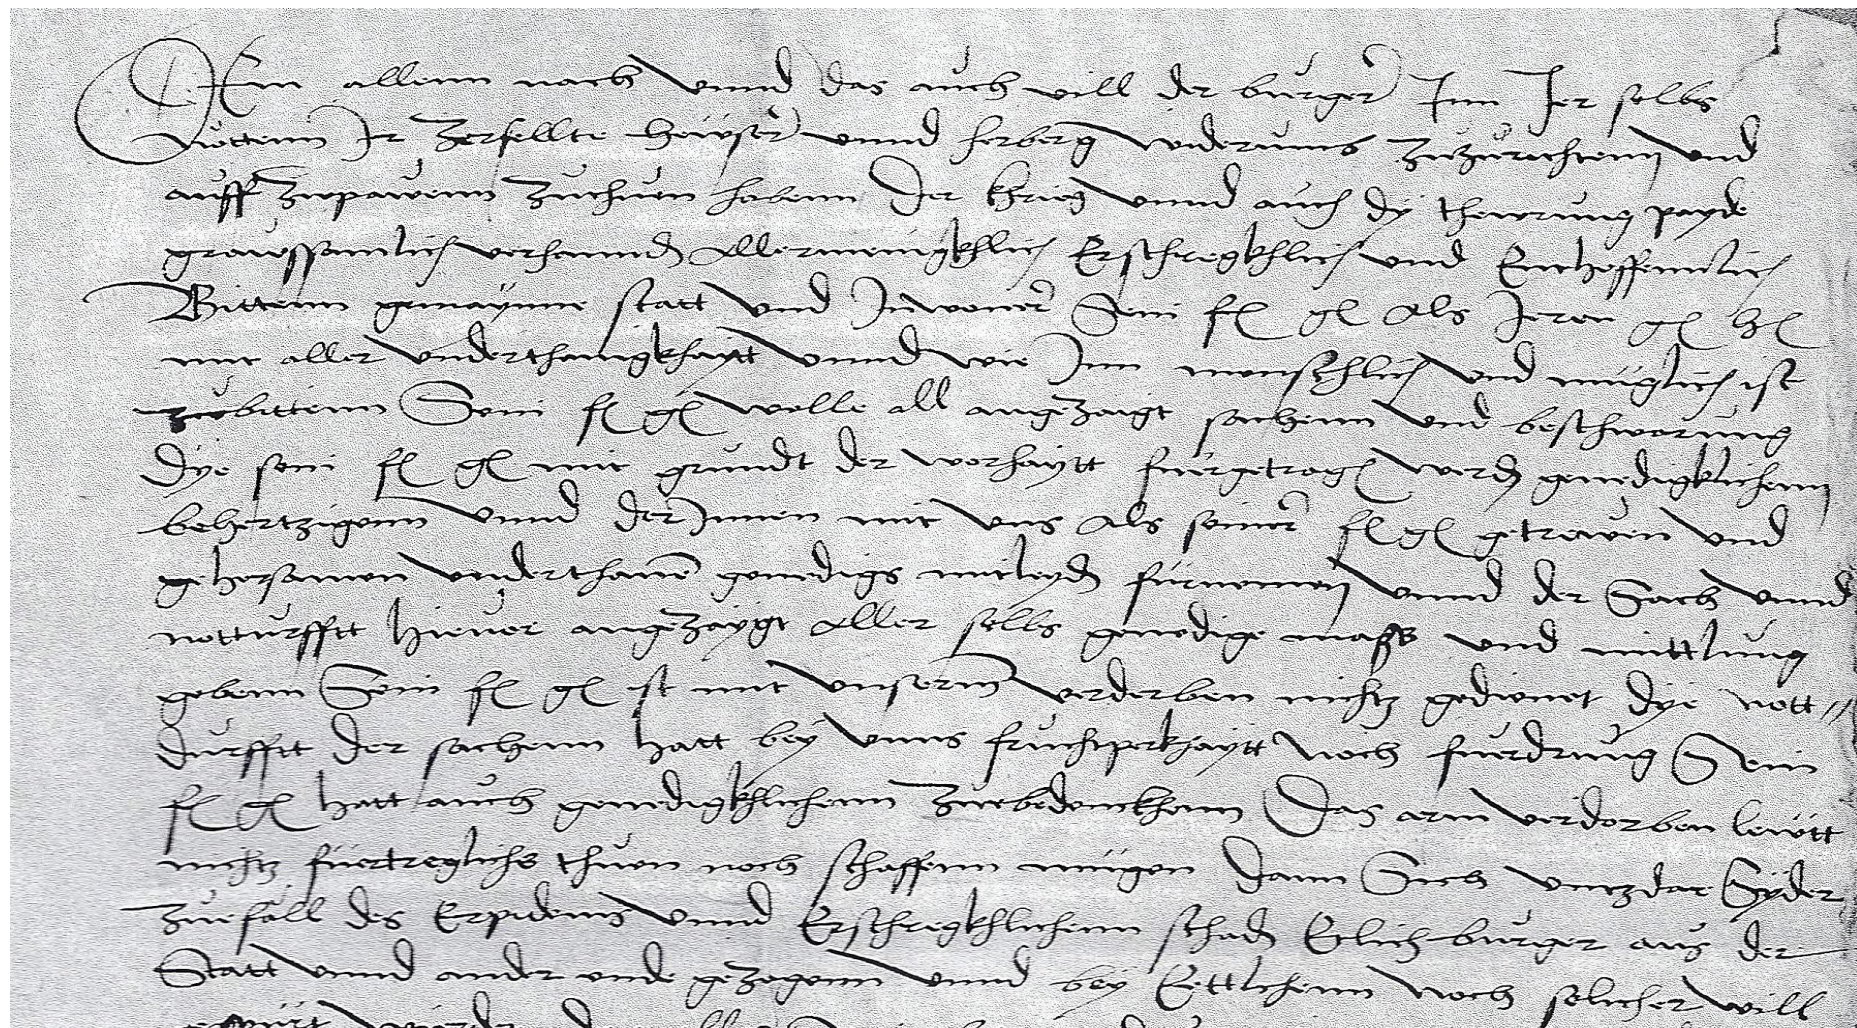 Dem allenn nach unnd das auch vill der burger Inn Jer selbs
nöttenn Jr Zerfellte heüyser unnd herberg widerumb Zuzurichtenn und
auff Zwpawenn Zuthuen habenn Der khrieg unnd auch dy thewrung payde
grawssamlich verhannden Allermenigkhlich Erschregkhlich und Entzessennlich
Bittenn gemayne statt und Inwoner Sein fl gl Als Jeren gl hl
mit aller underthanigkhaytt unnd wie Inn menschlich und müglich ist
zubittenn Sein fl gl welle all angezaigt sachenn und beschwerung
Dye sein fl gl mit grundt der worhaytt fuergetragen werden genedigklichenn
behertzigenn unnd der Innen mit uns Als seiner fl gl getrewen und
gehorsamen underthanen genedigs mitleyden fürnemen unnd der Sach unnd
notturfftt hievor angezaygt Aller selbs genedige mass und mittlung
gebenn Sein fl gl ist mit unserm verderben nichtz gedienet dye nott//
durfftt der sachenn hatt bey unns fruchtperkhaytt noch fuerdrung Sein
fl gl hatt auch genedigkhlichenn Zuebedenckhenn Das arm verdorben lewtt
nichtz fürtreglichs thuen noch schaffenn mügen dann Sich untzdar Syder
Zuefall des Erpidems unnd Erschregkhlichenn schaden Etlich burger aus der
Statt unnd ander ende gezogenn unnd bey Ettlichenn noch solicher will